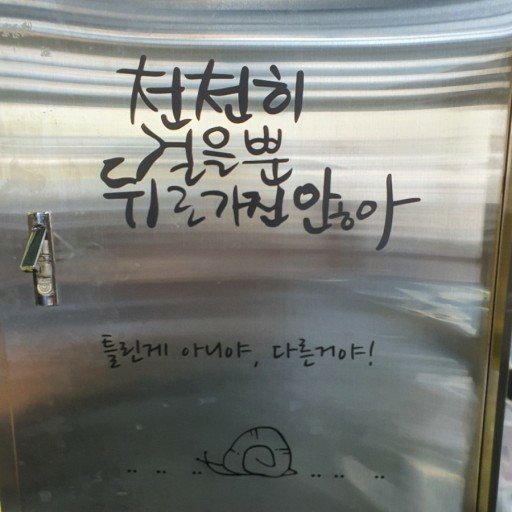 천천히
걸을뿐
뒤로가진 안하아
틀린게 아니야, 다른거야!